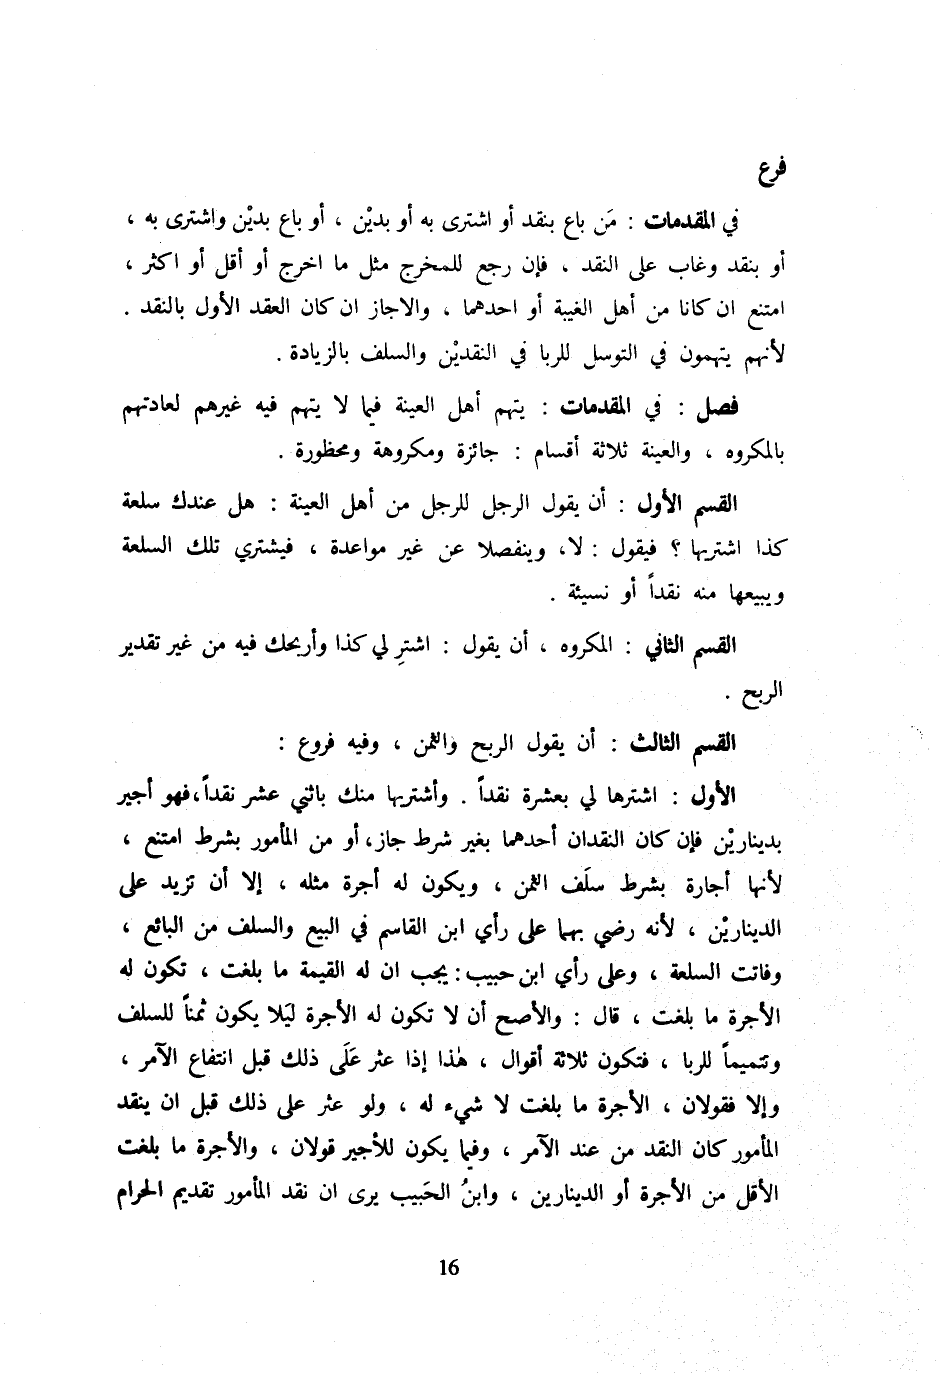 فرع
في المقدمات : مَن باع بنقد أو اشترى به أو بديْن ، أو باع بديْن واشترى به ،
أو بنقد وغاب على النقد ، فإن رجع للمخرج مثل ما اخرج أو أقل أو اكثر ،
امتنع ان كانا من أهل الغيبة أو احدهما ، والاجاز ان كان العقد الأول بالنقد .
لأنهم يتهمون في التوسل للربا في النقديْن والسلف بالزيادة .
فصل : في المقدمات : يتهم أهل العينة فيما لا يتهم فيه غيرهم لعادتهم
بالمكروه ، والعينة ثلاثة أقسام : جائزة ومكروهة ومحظورة .
القسم الأول : أن يقول الرجل للرجل من أهل العينة : هل عندك سلعة
كذا اشتريها ؟ فيقول : لا، وينفصلا عن غير مواعدة ، فيشتري تلك السلعة
ويبيعها منه نقداً أو نسيئة .
القسم الثاني : المكروه ، أن يقول : اشترِ لي كذا وأربحك فيه من غير تقدير
الربح .
القسم الثالث : أن يقول الربح والثمن ، وفيه فروع :
الأول : اشترها لي بعشرة نقداً . وأشتريها منك باثني عشر نقداً، فهو أجير
بديناريْن فإن كان النقدان أحدهما بغير شرط جاز، أو من المأمور بشرط امتنع ،
لأنها أجارة بشرط سلَف الثمن ، ويكون له أجرة مثله ، إلا أن تزيد على
الديناريْن ، لأنه رضي بهما على رأي ابن القاسم في البيع والسلف من البائع ،
وفاتت السلعة ، وعلى رأي ابن حبيب : يجب ان له القيمة ما بلغت ، تكون له
الأجرة ما بلغت ، قال : والأصح أن لا تكون له الأجرة لَيَلا يكون ثمناً للسلف
وتتميماً للربا ، فتكون ثلاثة أقوال ، هٰذا إذا عثر عَلَى ذلك قبل انتفاع الآمر ،
وإلا فقولان ، الأجرة ما بلغت لا شيء له ، ولو عثر على ذلك قبل ان ينقد
المأمور كان النقد من عند الآمر ، وفيما يكون للأجير قولان ، والأجرة ما بلغت
الأقل من الأجرة أو الدينارين ، وابنُ الحَبيب يرى ان نقد المأمور تقديم الحرام
16